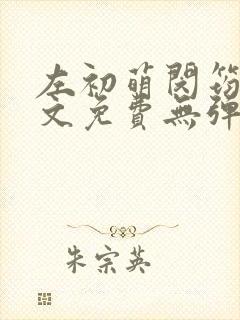 左初萌閔筠
文免費無彈
朱宗英